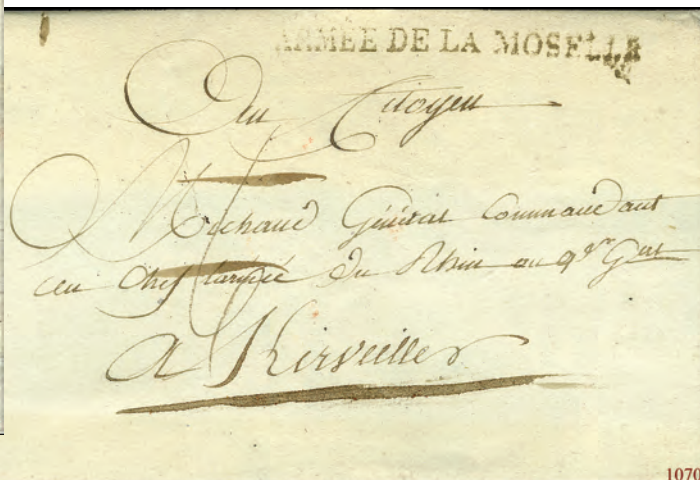 ARMÉE DE LA MOSELLE
Au Citoyen
Michaud Général Commandant
en Chef l'armée du Rhin au qer Gnal
a Kirveiller
1070